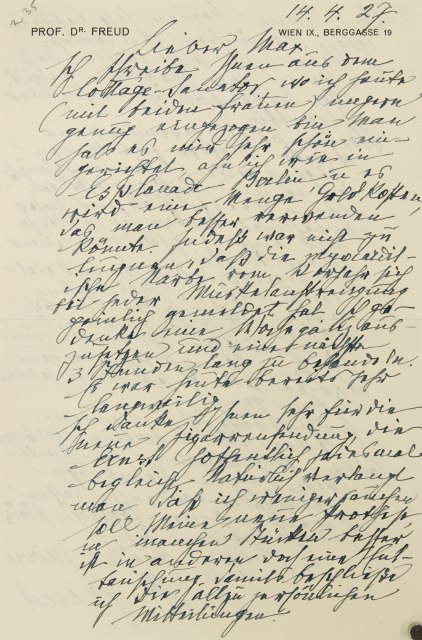 14. 4. 27.
PROF. DR. FREUD
WIEN IX., BERGGASSE 19
Lieber Max
Ich schreibe Ihnen aus dem
Cottage-Sanator, wo ich heute
(mit beiden Frauen) ungern
genug eingezogen bin. Man
hat es mir sehr schön ein-
gerichtet, ähnlich wie in
Esplanade Berlin u es
wird eine Menge Geld kosten,
das man besser verwenden
könnte. Indeß war nicht zu
daß die
Narbe vom Vorjahr sich
bei jeder Muskelanstrengung
peinlich gemeldet hat. Ich ge-
denke eine Woche ganz aus-
zusetzen und eine
3 Stunden lang zu behandeln.
Es war heute bereits sehr
langweilig.
Ich danke Ihnen sehr für die
neue Zigarrensendung, die
hoffentlich
begleicht. Natürlich verlangt
man, daß ich weniger rauchen
soll. Meine neue Prothese,
in manchen Stücken besser,
ist in anderen doch eine Ent-
täuschung. Damit beschließe
ich die allzu persönlichen
Mitteilungen.